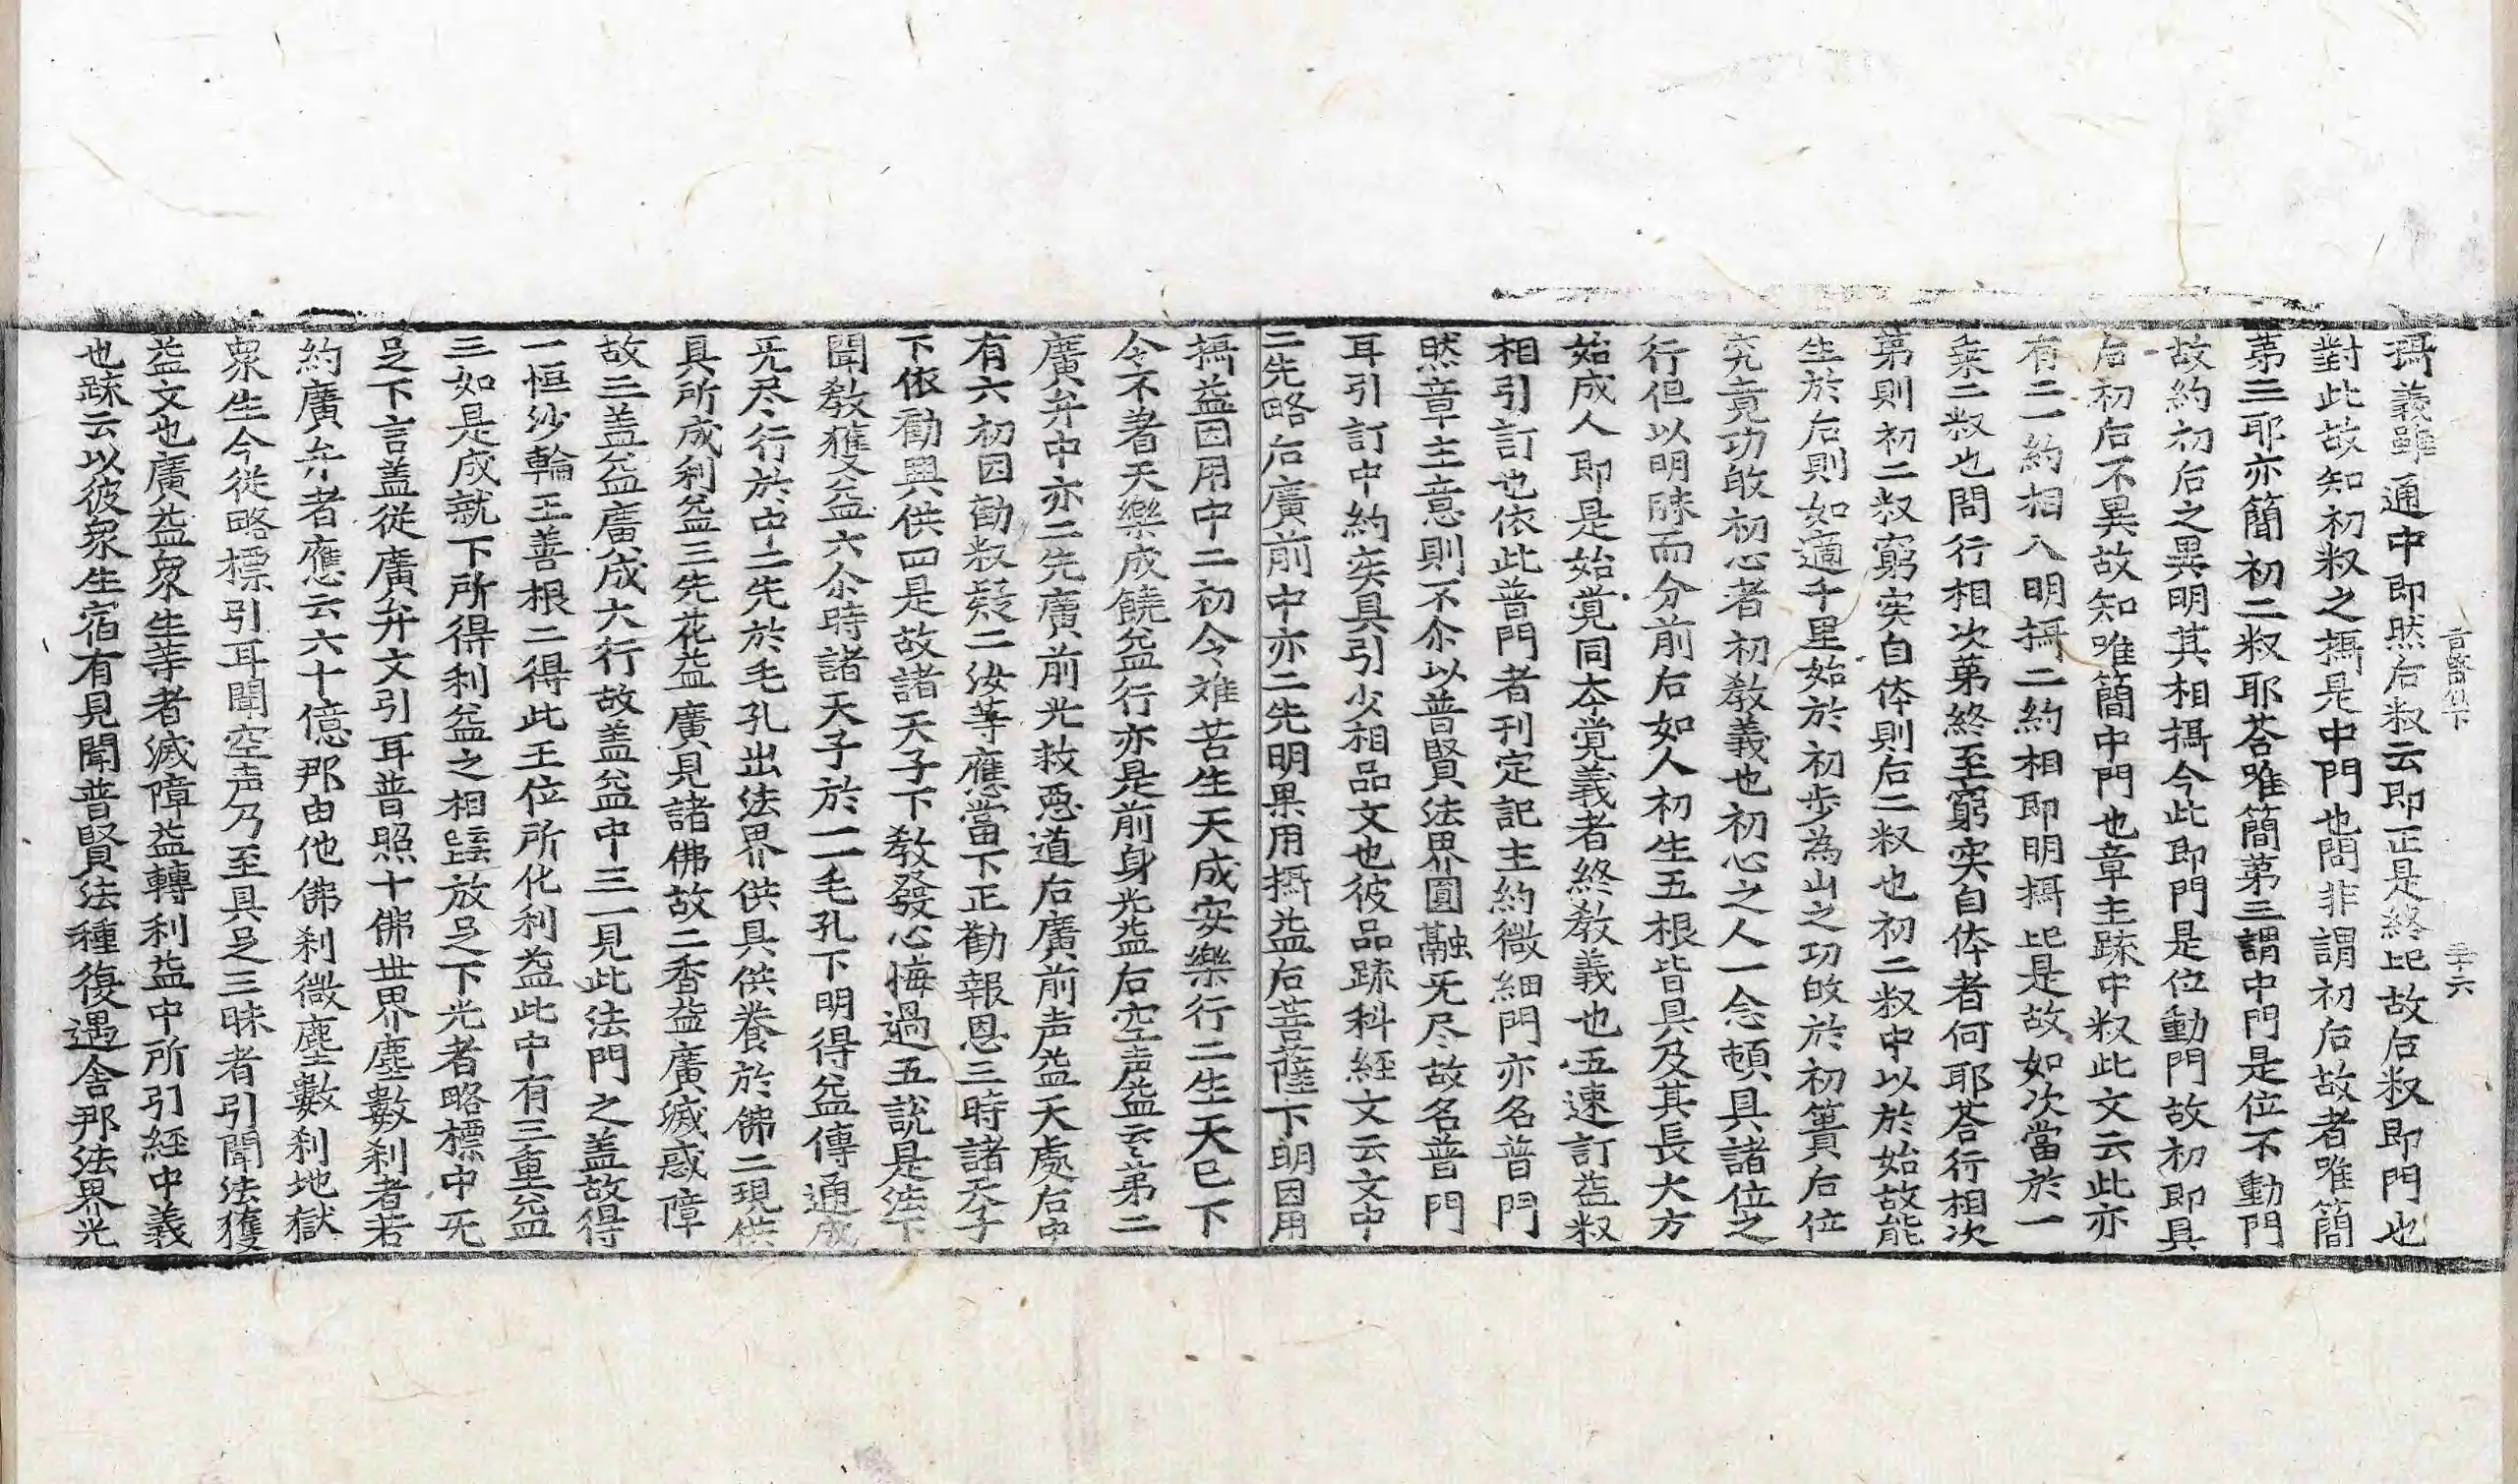 攝義雖通中即然后𥼶云即正是終此故后𥼶即門也
對此故知初𥼶之攝是中門也問非謂初后故者唯簡
苐三耶亦簡初二𥼶耶荅唯簡苐三謂中門是位不動門
故約初后之異明其相攝今此即門是位動門故初即具
后初后不異故知唯簡中門也章主䟽中𥼶此文云此亦
有二一約相入明攝二約相即明攝此是故如次當於一
乗二𥼶也問行相次苐終至窮实自体者何耶荅行相次
苐則初二𥼶窮实自体則后二𥼶也初二𥼶中以於始故能
生於后則如適千里始於初步為山之功故於初簣后位
究竟功故初心者初教義也初心之人一念頓具諸位之
行但以明昧而分前后如人初生五根皆具及其長大方
始成人即是始覺同夲覺義者終教義也五速訂益𥼶
相引訂也依此普門者刊定記主約微細門亦名普門
然章主意則不尒以普賢法界圓融旡尽故名普門
耳引訂中約实具引少相品文也彼品䟽科経文云文中
二先略后廣前中亦二先明果用攝益后菩薩下明因用
攝益因用中二初令难苦生天成安樂行二生天已下
令不著天樂成饒益行亦是前身光益后空声益云云弟二
廣弁中亦二先廣前光救惡道后廣前声益天處后中
有六初因勸𥼶疑二汝等應當下正勸報恩三時諸天子
下依勸興供四是故諸天子下教發心悔過五說是法下
聞教獲益六尒時諸天子於一一毛孔下明得益傳通成
旡尽行於中二先於毛孔出法界供具供養於佛二現供
具所成利益三先花益廣見諸佛故二香益廣滅惑障
故三盖益廣成大行故盖益中三一見此法門之盖故得
一恒沙輪王善根二得此王位所化利益此中有三重益
三如是成就下所得利益之相䟽放足下光者略標中旡
足下言盖從廣弁文引耳普照十佛世界塵數刹者若
約廣弁者應云六十億那由他佛刹微塵數刹地獄
衆生今從略標引耳聞空声乃至具足三昧者引聞法獲
益文也廣益衆生等者滅障益轉利益中所引経中義
也䟽云以彼衆生宿有見聞普賢法種復遇舎那法界光